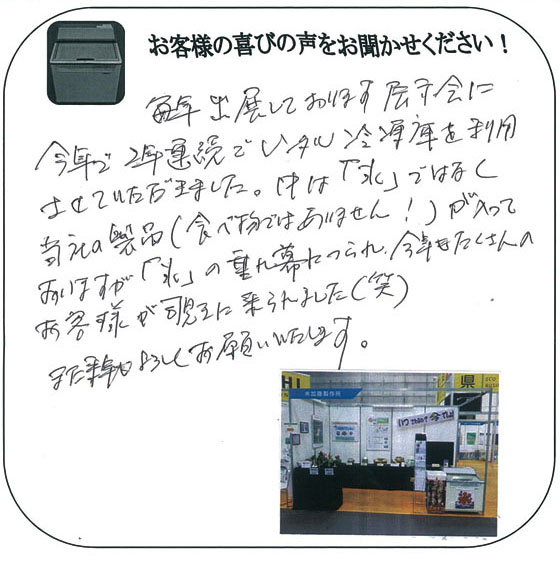 お客様の喜びの声をお聞かせください！
毎年出展しております展示会に
今年で2年連続でレンタル冷凍庫を利用
させていただきました。中は「氷」ではなく
当社の製品(食べ物ではありません！)が入って
おりますが「氷」の垂れ幕につられ、今年もたくさんの
お客様が覗きに来られました(笑)
また来年もよろしくお願いいたします。
県
氷